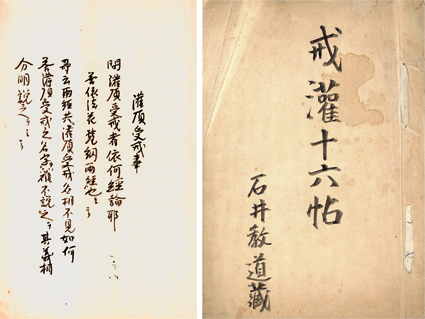 戒灌十六帖
石井教道藏
灌頂受戒事
問灌頂受戒者依何經論耶
答依法花梵網両經也
尋云両經共灌頂受戒名相不見如何
答灌頂受戒之名字雖不説之其義相
分明説之